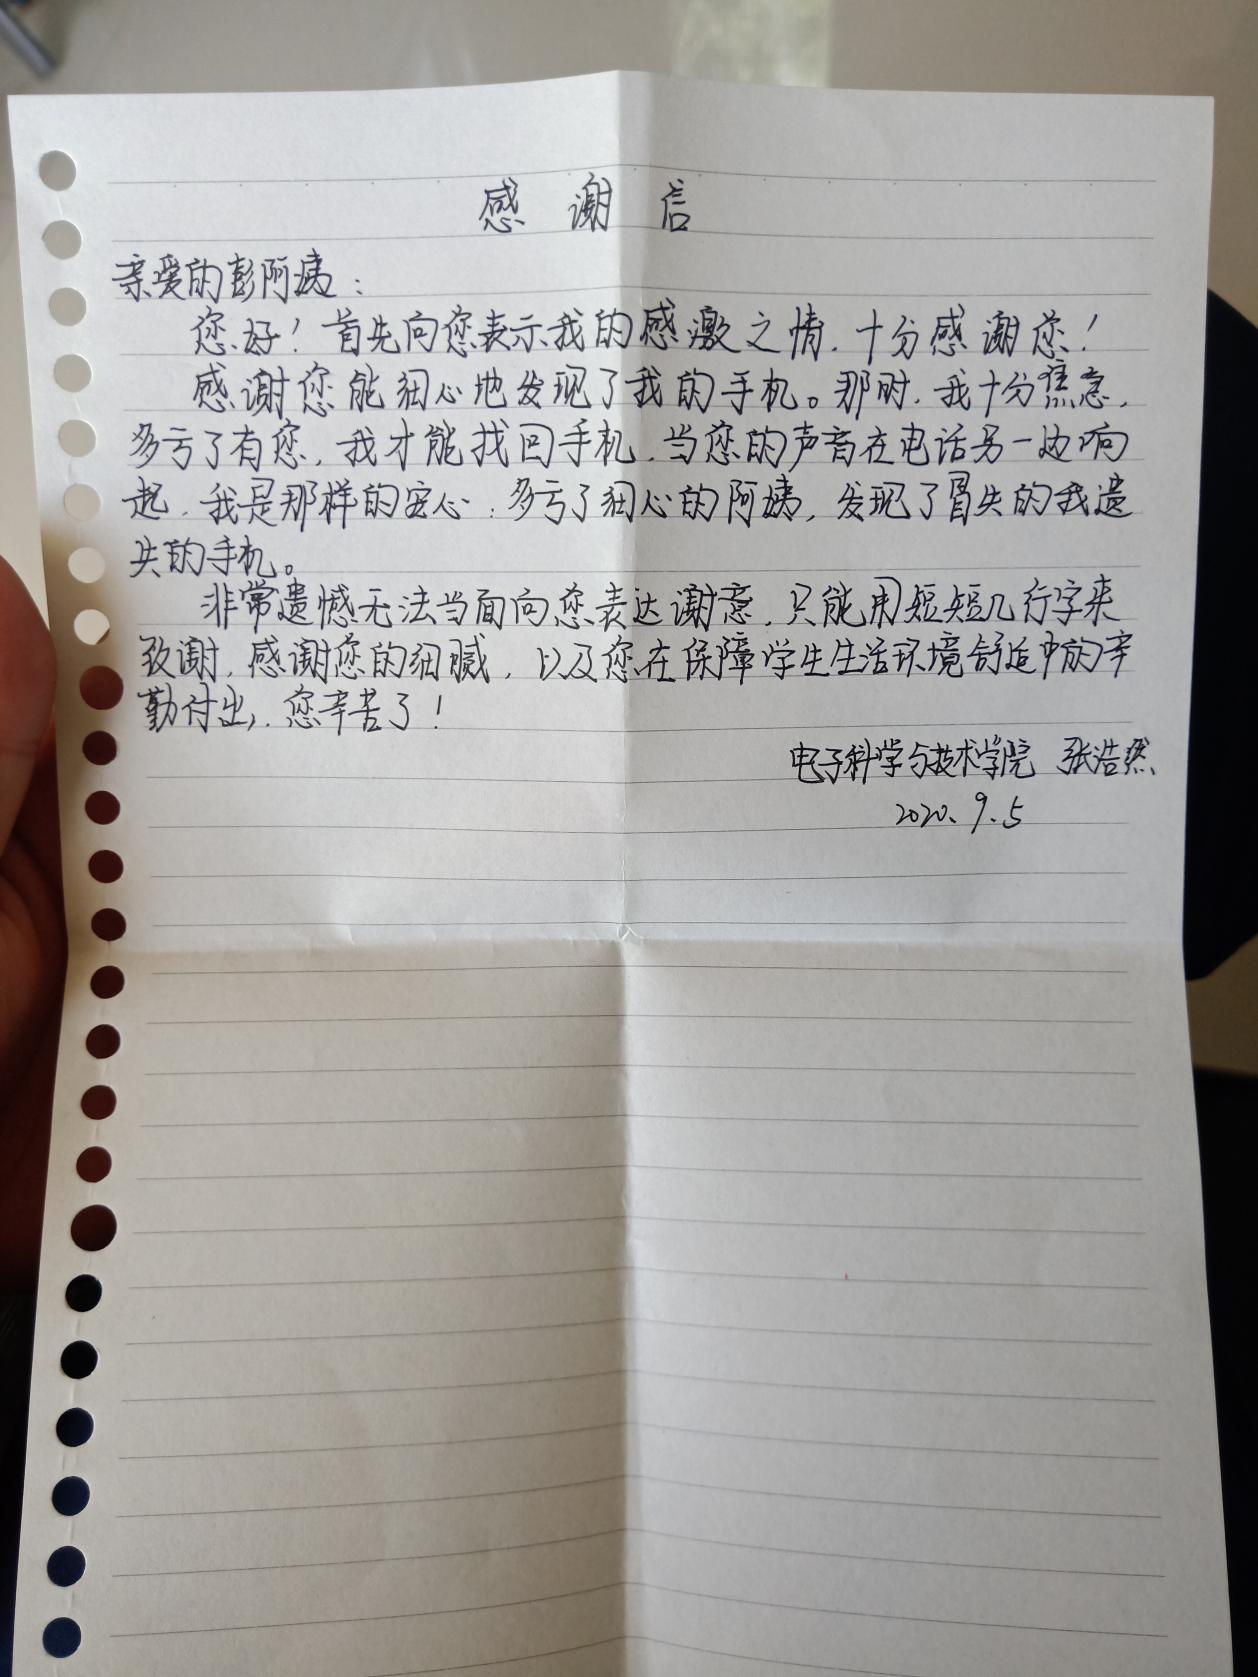 感谢信
亲爱的彭阿姨：
您好！首先向您表示我的感激之情，十分感谢您！
感谢您能细心地发现了我的手机。那时，我十分焦急，
多亏了有您，我才能找回手机，当您的声音在电话另一边响
起，我是那样的安心：多亏了细心的阿姨，发现了冒失的我遗
失的手机。
非常遗憾无法当面向您表达谢意，只能用短短几行字来
致谢，感谢您的细腻，以及您在保障学生生活环境舒适中的辛
勤付出，您辛苦了！
电子科学与技术学院 张浩然
2020.9.5